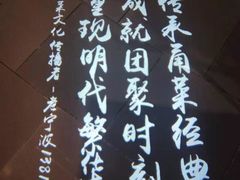 传承甬菜经典
成就团聚时刻
重现明代繁华
菜文化传播者-老宁波1381